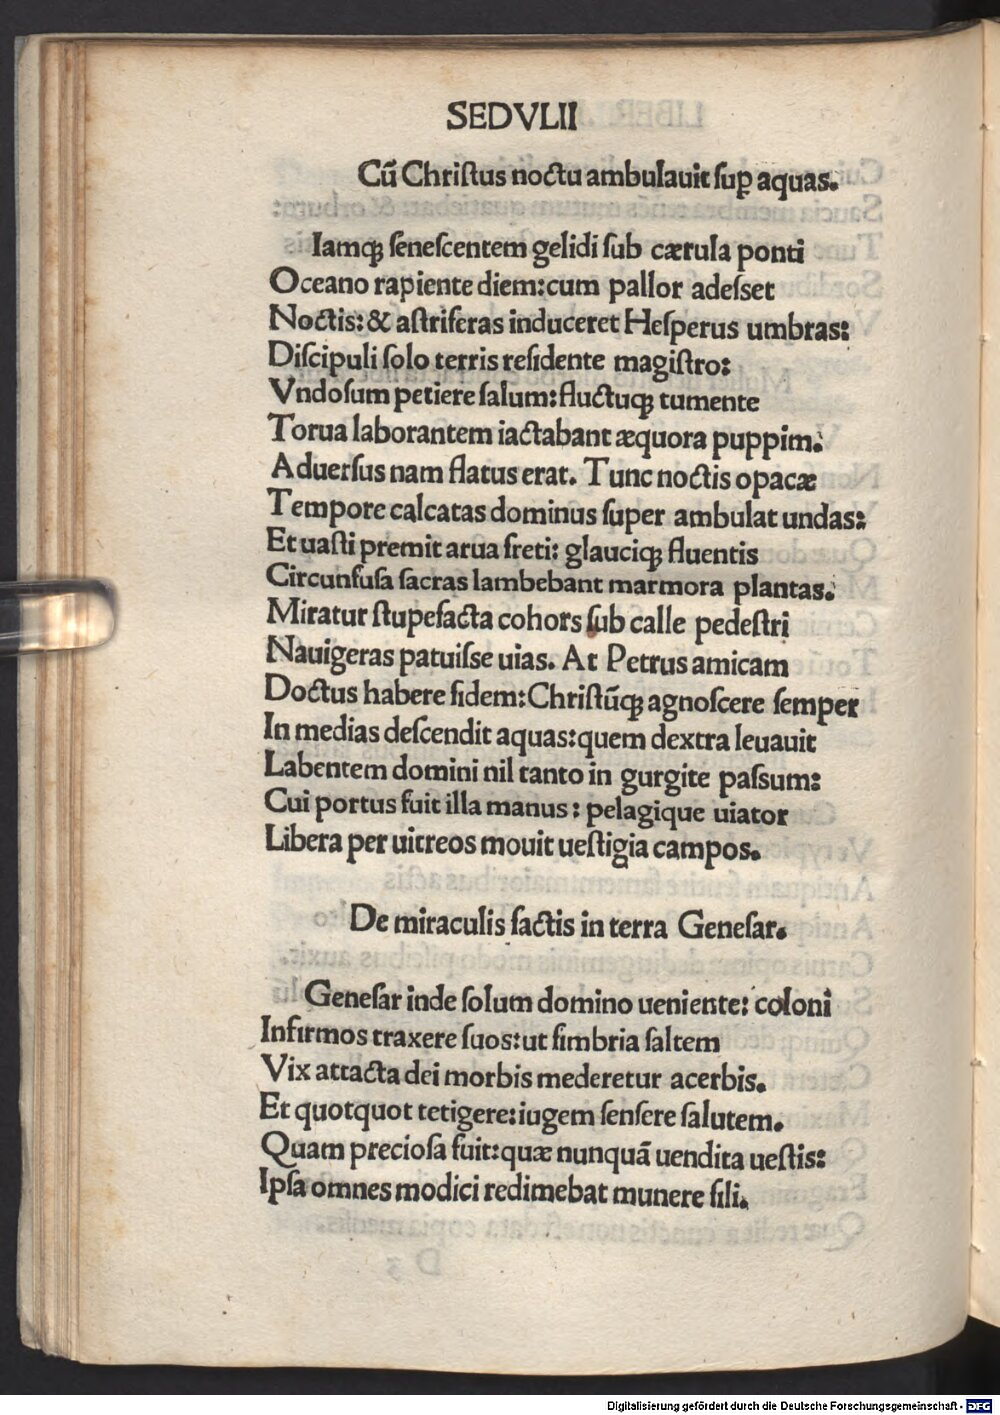 SEDVLII
Cū Chriſtus noctu ambulauit ſuꝑ aquas.
Iamqꝫ ſeneſcentem gelidi ſub cærula ponti
Oceano rapiente diem:cum pallor adeſset
Noctis:& aſtriferas induceret Heſperus umbras:
Diſcipuli ſolo terris reſidente magiſtro:
Vndoſum petiere ſalum:fluctuqꝫ tumente
Torua laborantem iactabant æquora puppim.
Aduerſus nam flatus erat. Tunc noctis opacæ
Tempore calcatas dominus ſuper ambulat undas:
Et uaſti premit arua freti: glauciqꝫ fluentis
Circunfuſa ſacras lambebant marmora plantas.
Miratur ſtupefacta cohors ſub calle pedeſtri
Nauigeras patuiſse uias. At Petrus amicam
Doctus habere fidem:Chriſtūqꝫ agnoſcere ſemper
In medias deſcendit aquas:quem dextra leuauit
Labentem domini nil tanto in gurgite paſsum:
Cui portus fuit illa manus: pelagique uiator
Libera per uitreos mouit ueſtigia campos.
De miraculis factis in terra Geneſar.
Geneſar inde ſolum domino ueniente: coloni
Infirmos traxere ſuos:ut fimbria ſaltem
Vix attacta dei morbis mederetur acerbis.
Et quotquot tetigere:iugem ſenſere ſalutem.
Quam precioſa fuit:quæ nunquā uendita ueſtis:
Ipſa omnes modici redimebat munere fili.
Digitalisierung gefördert durch die Deutsche Forschungsgemeinschaft - DFG